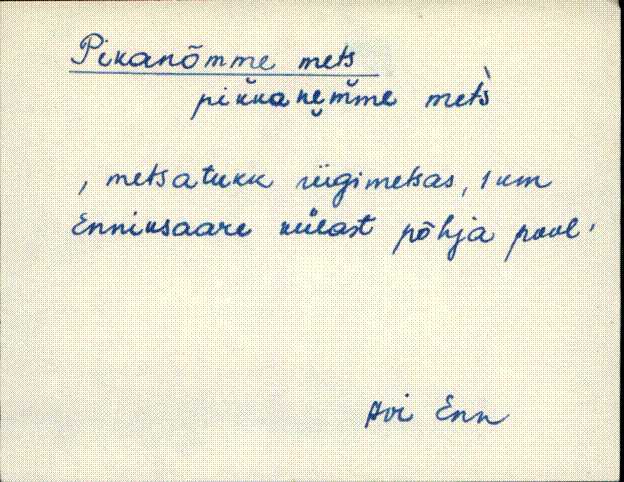 Pikanõmme mets
pik̆kane̮m̆me mets̀
, metsatukk riigimetsas, 1 km
Enniksaare külast põhja pool.
Avi Enn